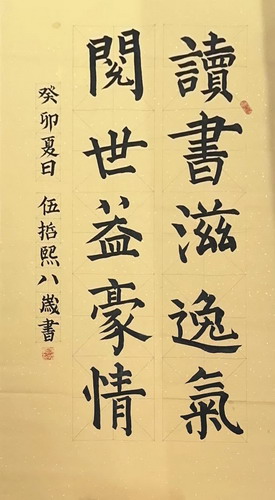 讀書滋逸氣
閱世益豪情
癸卯夏日 伍哲熙八歲書